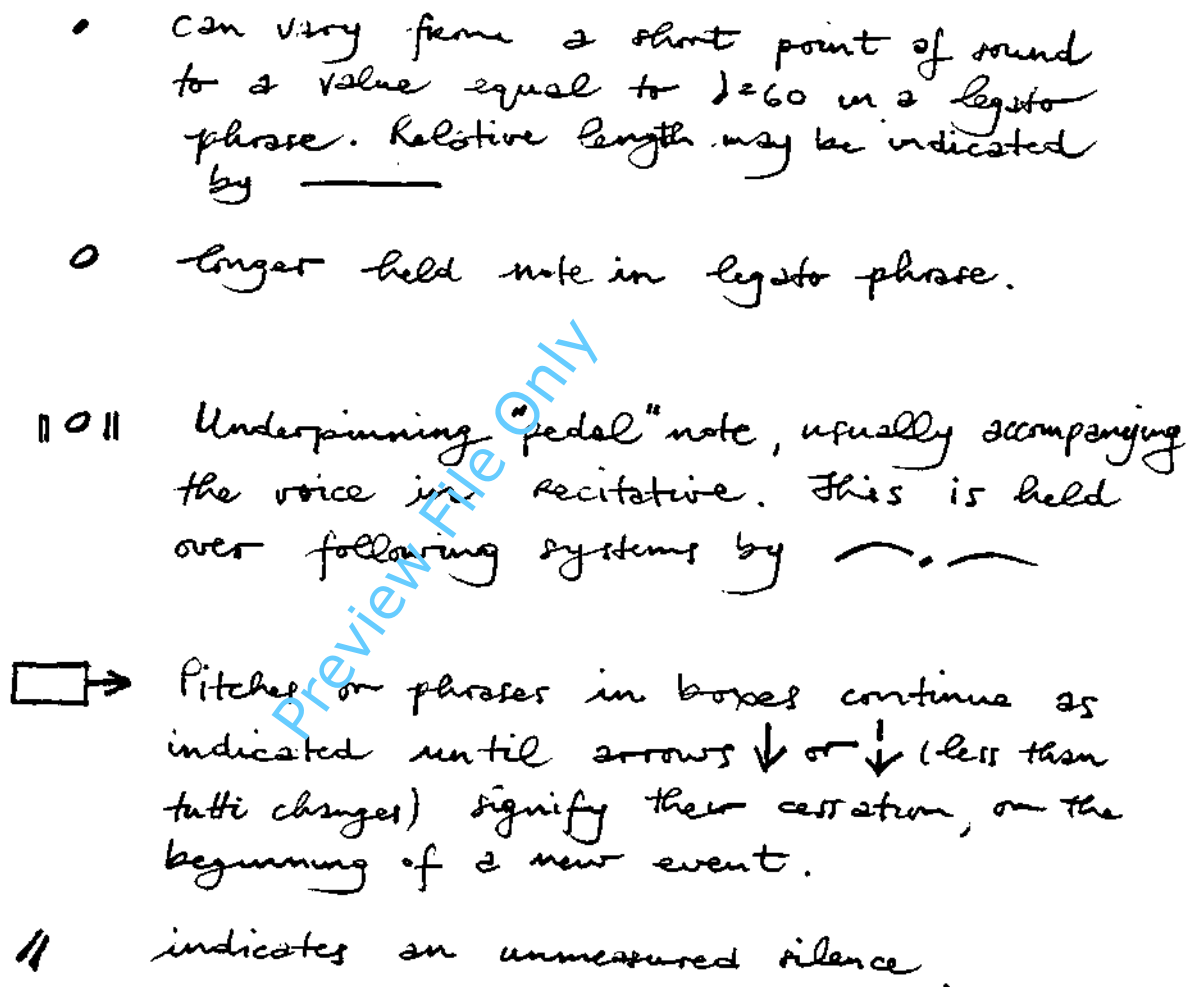 • can vary from a short point of sound
to a value equal to ♩=60 in a legato
phrase. Relative length may be indicated
by ———
o longer held note in legato phrase.
|| o || Underpinning "pedal" note, usually accompanying
the voice in recitative. This is held
over following systems by
Pitches or phrases in boxes continue as
indicated until arrows ↓ or ⇣ (less than
tutti changes) signify their cessation, or the
beginning of a new event.
// indicates an unmeasured silence.
Preview File Only